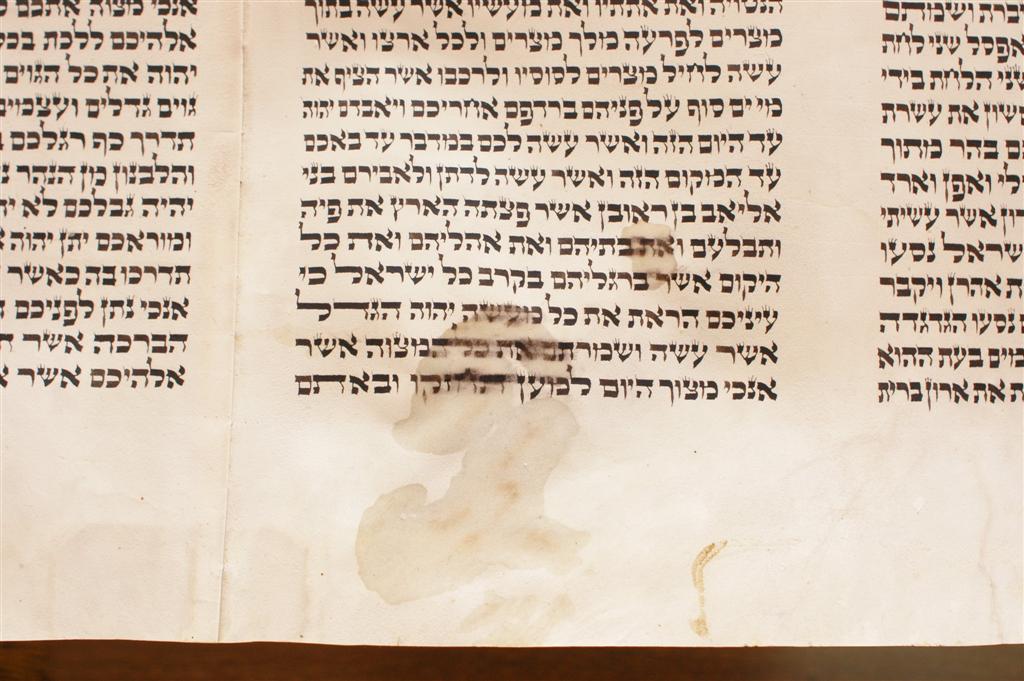 ושמתם
ואפסל שני לחת
שני הלחת בידי
את עשרת
בהר מתוך
ואפן וארד
אשר עשיתי
ישראל נסעו
אהרן ויקבר
נסעו הגדגדה
מים בעת ההוא
את ארון ברית
הנטויה ואת אתתיו ואת מעשיו אשר עשה בתוך
מצרים לפרעה מלך מצרים ולכל ארצו ואשר
עשה לחיל מצרים לסוסיו ולרכבו אשר הציף את
מי ים סוף על פניהם ברדפם אחריכם ויאבדם יהוה
עד היום הזה ואשר עשה לכם במדבר עד באכם
עד המקום הזה ואשר עשה לדתן ולאבירם בני
אליאב בן ראובן אשר פצתה הארץ את פיה
ותבלעם ואת בתיהם ואת אהליהם ואת כל
היקום אשר ברגליהם בקרב כל ישראל כי
עיניכם הראת את כל מעשה יהוה הגדל
אשר עשה ושמרתם את כל המצוה אשר
אנכי מצוך היום למען תחזקו ובאתם
אנכי מצוה אתכם
אלהיכם ללכת בכל
יהוה את כל הגוים
גוים גדלים ועצמים
תדרך כף רגלכם
והלבנון מן הנהר
יהיה גבלכם לא
ומוראכם יתן יהוה
תדרכו בה כאשר
אנכי נתן לפניכם
הברכה אשר
אלהיכם אשר